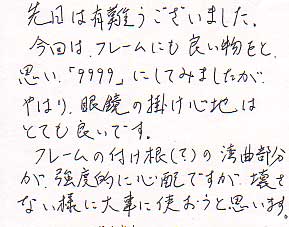 先日は有難うございました。
今回は、フレームにも良い物をと、
思い、「9999」にしてみましたが
やはり、眼鏡の掛け心地は
とても良いです。
フレームの付け根(?)の湾曲部分
が、強度的に心配ですが、壊さ
ない様に大事に使おうと思います。